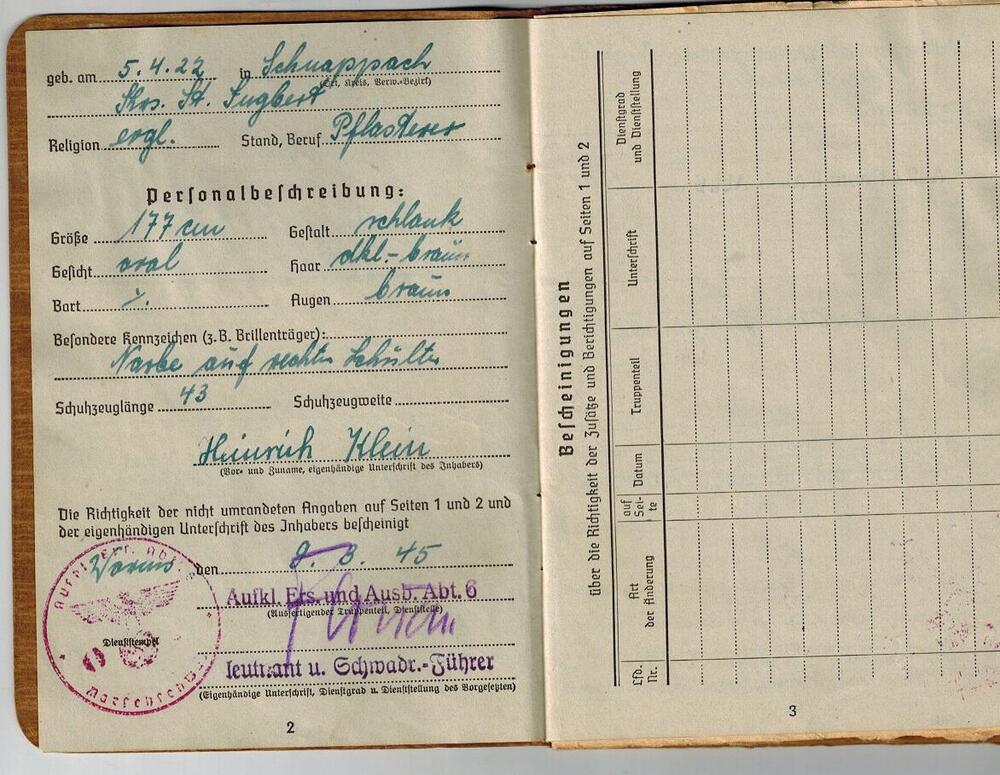 geb. am 5.4.22 in Schnappach
(Ort, Kreis, Verw.-Bezirk)
Krs. St. Ingbert
Religion evgl. Stand, Beruf Pflasterer
Personalbeschreibung:
Größe 177 cm Gestalt schlank
Gesicht oval Haar dkl-braun
Bart ./. Augen braun
Besondere Kennzeichen (z.B. Brillenträger):
Narbe auf rechte Schulter
Schuhzeuglänge 43 Schuhzeugweite
Heinrich Klein
(Vor- und Zuname, eigenhändige Unterschrift des Inhabers)
Die Richtigkeit der nicht umrandeten Angaben auf Seiten 1 und 2 und
der eigenhändigen Unterschrift des Inhabers bescheinigt
Worms, den 9. 3. 45
Aufkl. Ers. und Ausb. Abt. 6
(Ausfertigender Truppenteil, Dienststelle)
Dienststempel
Leutnant u. Schwadr.-Führer
(Eigenhändige Unterschrift, Dienstgrad u. Dienststellung des Vorgesetzten)
2
Bescheinigungen
über die Richtigkeit der Zusätze und Berichtigungen auf Seiten 1 und 2
Lfd. Nr.
Art der Änderung
auf Sei-te
Datum
Truppenteil
Unterschrift
Dienstgrad und Dienststellung
3